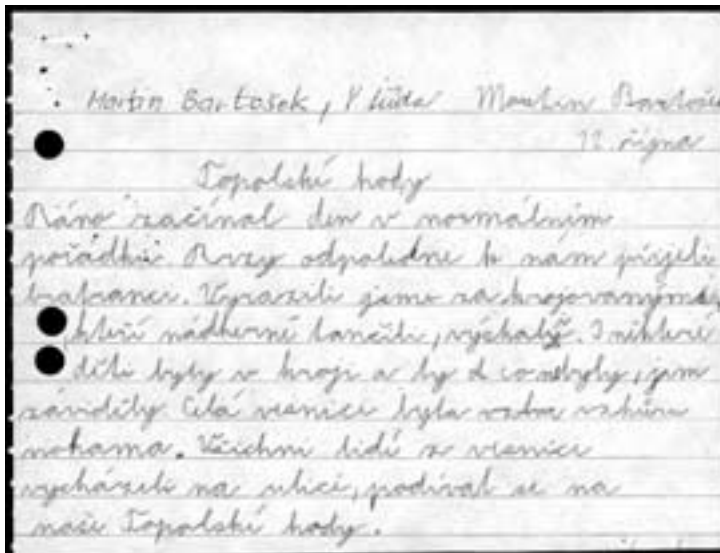 Martin Bartošek, V. třída Martin Bartoše
12. října
Topolské hody
Ráno začínal den v normálním
pořádku. Brzy odpoledne k nám přijeli
bratranci. Vyrazili jsme za krojovanými
kteří nádherně tančili, výskaly. I některé
děti byly v kroji a ty co nebyly, jim
záviděly. Celá vesnice byla vzhůru
nohama. Všichni lidé z vesnice
vycházeli na ulici, podívat se na
naše Topolské hody.